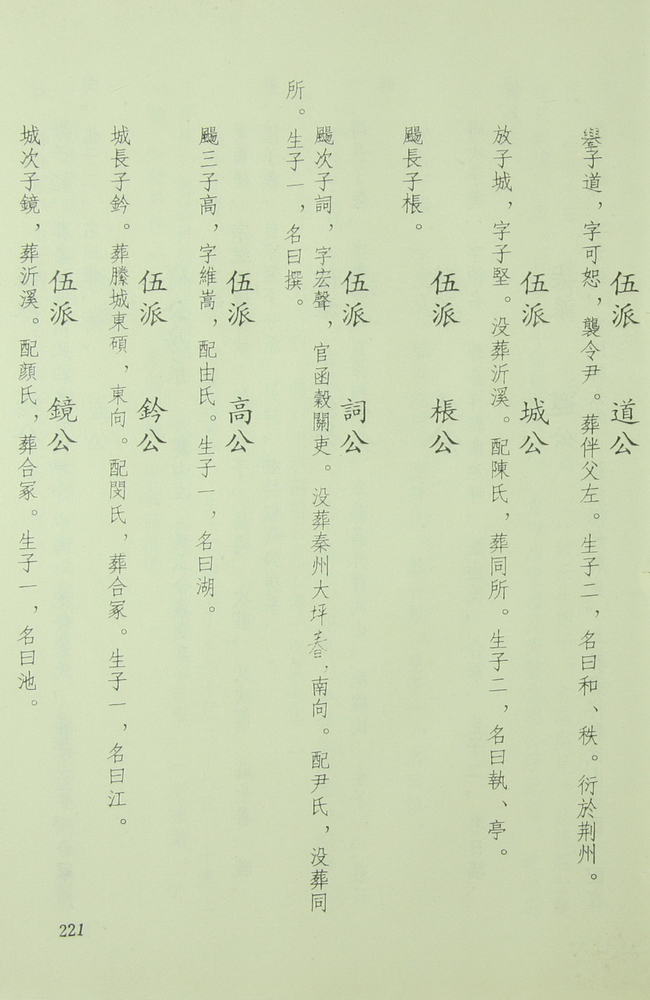 伍派　道公
子道，字可恕，襲令尹。葬伴父左。生子二，名曰和、秩。衍於荆州。
伍派　城公
放子城，字子堅。没葬沂溪。配陳氏，葬同所。生子二，名曰執、亭。
伍派　棖公
颺長子棖。
伍派　詞公
颺次子詞，字宏聲，官函穀關吏。没葬秦州大坪，南向。配尹氏，没葬同
所。生子一，名曰撰。
伍派　高公
颺三子高，字維嵩，配由氏。生子一，名曰湖。
伍派　鈐公
城長子鈐。葬滕城東碩，東向。配閔氏，葬合冢。生子一，名曰江。
伍派　鏡公
城次子鏡，葬沂溪。配顔氏，葬合冢。生子一，名曰池。
221